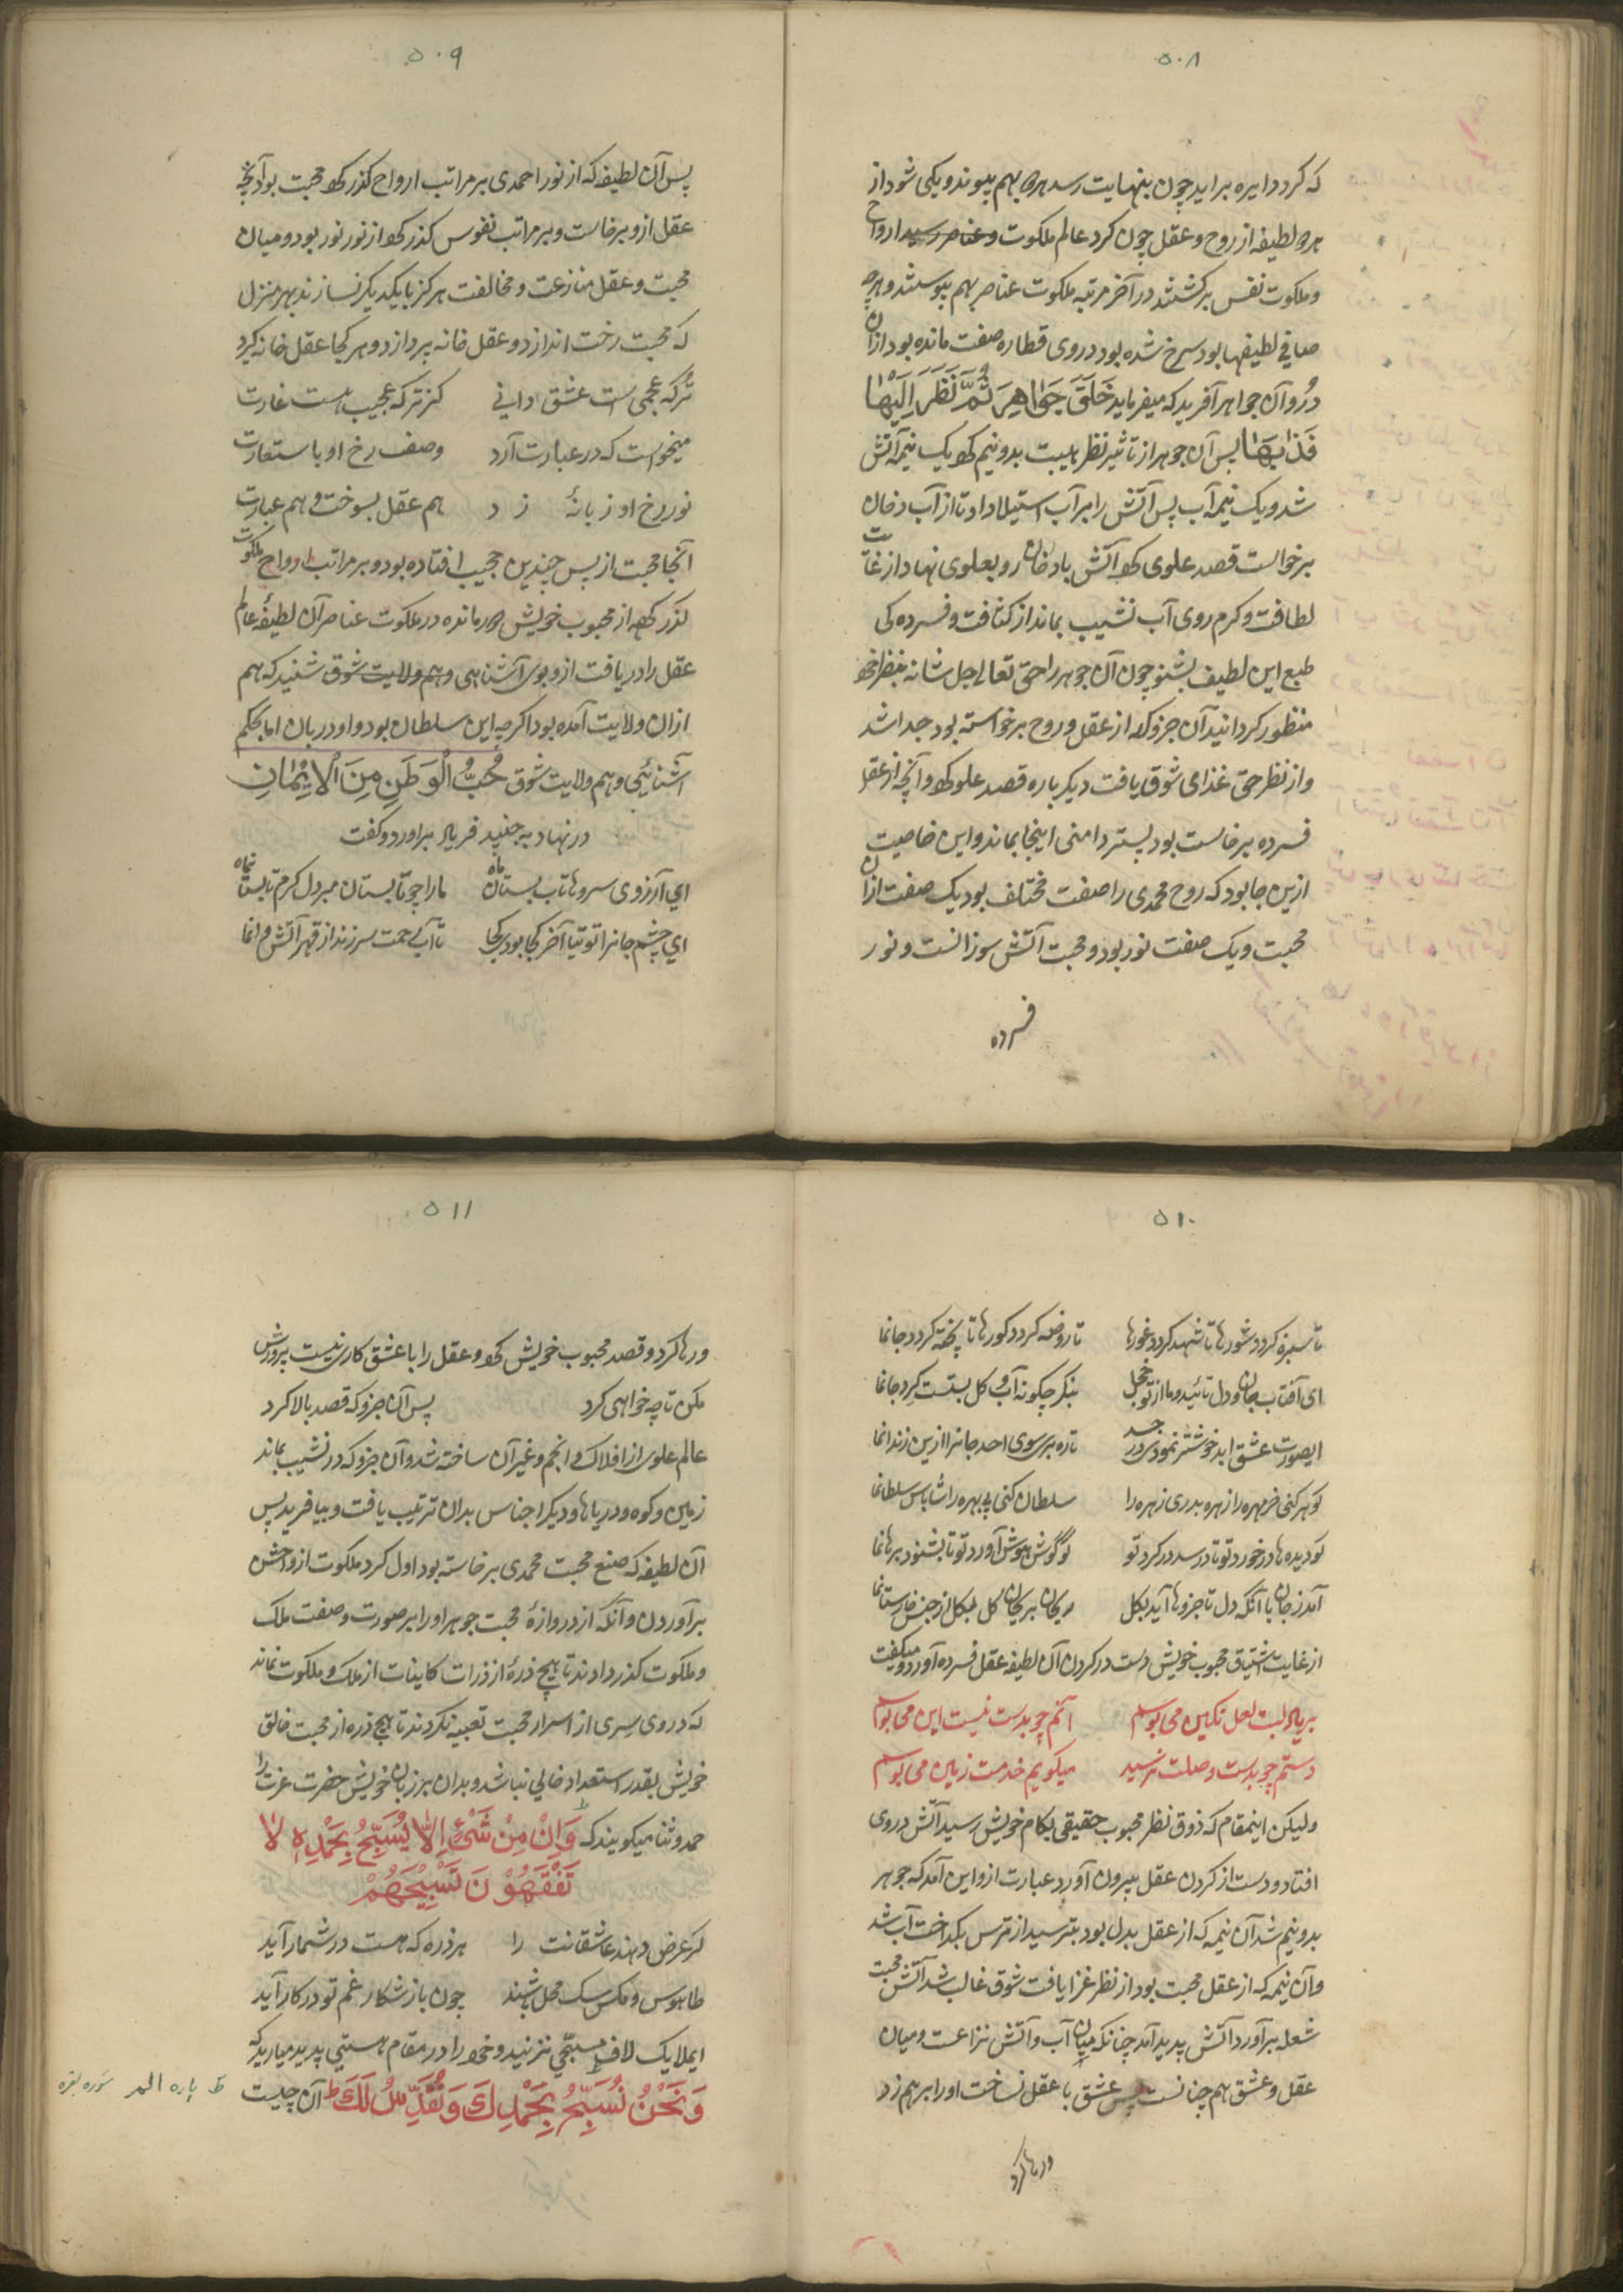 ۵۰۸
که کرد دایره براید چون بنهایت رسد هردو بهم پیوندد و یکی شود از
هردو لطیفه از روح و عقل چون کرد عالم ملکوت و عناصر رسید ارواح
و ملکوت نفس برکشتند در آخر مرتبه ملکوت عناصر بهم پیوستند و هرچه
صافی لطیفها بود سرخ شده بود دروی قطاره صفت مانده بود ازان
درو آن جواهر آفرید که میفرماید خَلَقَ جَوَاهِرَ ثُمَّ نَظَرَ اِلَیْهَا
فَذَابَهَا پس آن جوهر از تاثیر نظر هیبت بدو نیم کرد یک نیمه آتش
شد و یک نیمه آب پس آتش را بر آب استیلا داد تا از آب دخان
برخواست قصد علوی کرد آتش با دخان رو بعلوی نهاد از غایت
لطافت و کرم روی آب نشیب بماند از کثافت و فسرده کی
طبع این لطیف بشنو چون آن جوهر را حق تعالی جل شانه بنظر خود
منظور کردانید آن جزو که از عقل و روح برخواسته بود جدا شد
و از نظر حق غذای شوق یافت دیکر باره قصد علو کرد و آنچه از عقل
فسرده برخاست بود بستر دامنی اینجا بماند و این خاصیت
ازین جا بود که روح محمدی را صفت مختلف بود یک صفت ازان
محبت و یک صفت نور بود و محبت آتش سوزانست و نور
فسرده
۵۰۹
پس آن لطیفه که از نور احمدی بر مراتب ارواح کذر کرد محبت بود آنچه
عقل ازو برخاست و بر مراتب نفوس کذر کرد از نور نور بود و میان
محبت و عقل منازعت و مخالفت هرکز با یکدیکر نسازند بهر منزل
که محبت رخت اندازد و عقل خانه بپردازد و هر کجا عقل خانه کیرد
ترکه عجمی است عشق دانی کز ترکه عجیب است غارت
میخواست که در عبارت آرد وصف رخ او باستعارت
نور رخ او زبانهٔ زد هم عقل بسوخت و هم عبارت
آنجا محبت از پس چندین حجب افتاده بود و بر مراتب ارواح ملکوت
کذر کرده از محبوب خویش دور مانده در ملکوت عناصر آن لطیفهٔ عالم
عقل را دریافت ازو بوی آشناهی و هم ولایت شوق شنید که هم
ازان ولایت آمده بود اکرچه این سلطان بود و او دربان اما بحکم
آشنائی و هم ولایت شوق حُبُّ الْوَطَنِ مِنَ الْاِیْمَانِ
در نهاد به جنید فریاد براورد و کفت
ای آرزوی سروها تاب بستان ماه مارا چو تابستان مبر دل کرم تا بستان نماه
ای چشم جانرا توتیا آخر کجا بودی کجا تا آب رحمت سرزند از قهر آتش دانما
۵۱۰
تا سبزه کردد شورها تا شهد کردد غورها تا روضه کردد کورها تا پخته کردد جانما
ای آفتاب جان و دل تائید و ما از تو خجل بنکر چکونه آب و کل بستست کرد جانما
ایصورت عشق ابد خوشتر نمودی در جسد تا ره بری سوی احد جانرا ازین زندانما
کوهر کنی خرمهره را زهره بدری زهره را سلطان کنی بی بهره را شاباس سلطانما
کو دیده ها در خورد تو تا در رسد در کرد تو کو کوش هوش آورد تو تا بشنود برهانما
آمد ز جان با آنکه دل تا جزوها آید بکل ریحان بریحان کل بکل از جنس خارستانما
از غایت اشتیاق محبوب خویش دست در کردن آن لطیفه عقل فسرده آورد و میکفت
بر یاد لبت لعل نکین می بوسم آنم چو بدست نیست این می بوسم
دستم چو بدست وصلت نرسید میکویم خدمت زمین می بوسم
ولیکن اینمقام که ذوق نظر محبوب حقیقی بکام خویش رسید آتش دروی
افتاد و دست از کردن عقل بیرون آورد عبارت ازو این آمد که جوهر
بدو نیم شد آن نیمه که از عقل بدل بود بترسید از ترس بکداخت آب شد
و آن نیمه که از عقل محبت بود از نظر غزا یافت شوق غالب شد آتش محبت
شعله برآورد آتش پدید آمد چنانکه میان آب و آتش نزاعت و میان
عقل و عشق هم چنانست پس عشق با عقل نساخت او را برهم زد
و رها کرد
۵۱۱
و رها کرد و قصد محبوب خویش کرد و عقل را با عشق کاری نیست پرورش
مکن تا چه خواهی کرد پس آن جزو که قصد بالا کرد
عالم علوی از افلاک و انجم و غیر آن ساخته شد و آن جزو که در نشیب بماند
زمین و کوه و دریاها و دیکر اجناس بدان ترتیب یافت و بیافرید پس
آن لطیفه که صنع محبت محمدی برخاسته بود اول کرد ملکوت ازو احسن
برآوردن و آنکه از دروازهٔ محبت جوهر او را بر صورت و صفت ملک
و ملکوت کذر دادند تا هیچ ذرهٔ از ذرات کاینات از ملک و ملکوت نماند
که دروی سری از اسرار محبت تعبیه نکردند تا هیچ ذره از محبت خالق
خویش بقدر استعداد خالی نباشد و بدان بر زبان خویش حضرت عزت را
حمد و ثنا میکویند که وَاِنْ مِنْ شَیْءٍ اِلَّا یُسَبِّحُ بِحَمْدِهٖ لَا
تَفْقَهُوْنَ تَسْبِیْحَهُمْ
کر عرض دهند عاشقانت را هر ذره که هست در شمار آید
طاوس و مکس سک محل باشند چون باز شکار غم تو در کار آید
ایملایک لاف مسبحی نزنید و خود را در مقام هستیی پدید میارید که
وَنَحْنُ نُسَبِّحُ بِحَمْدِكَ وَنُقَدِّسُ لَكَ ط آن چیست
ط پاره الم سوره بقره